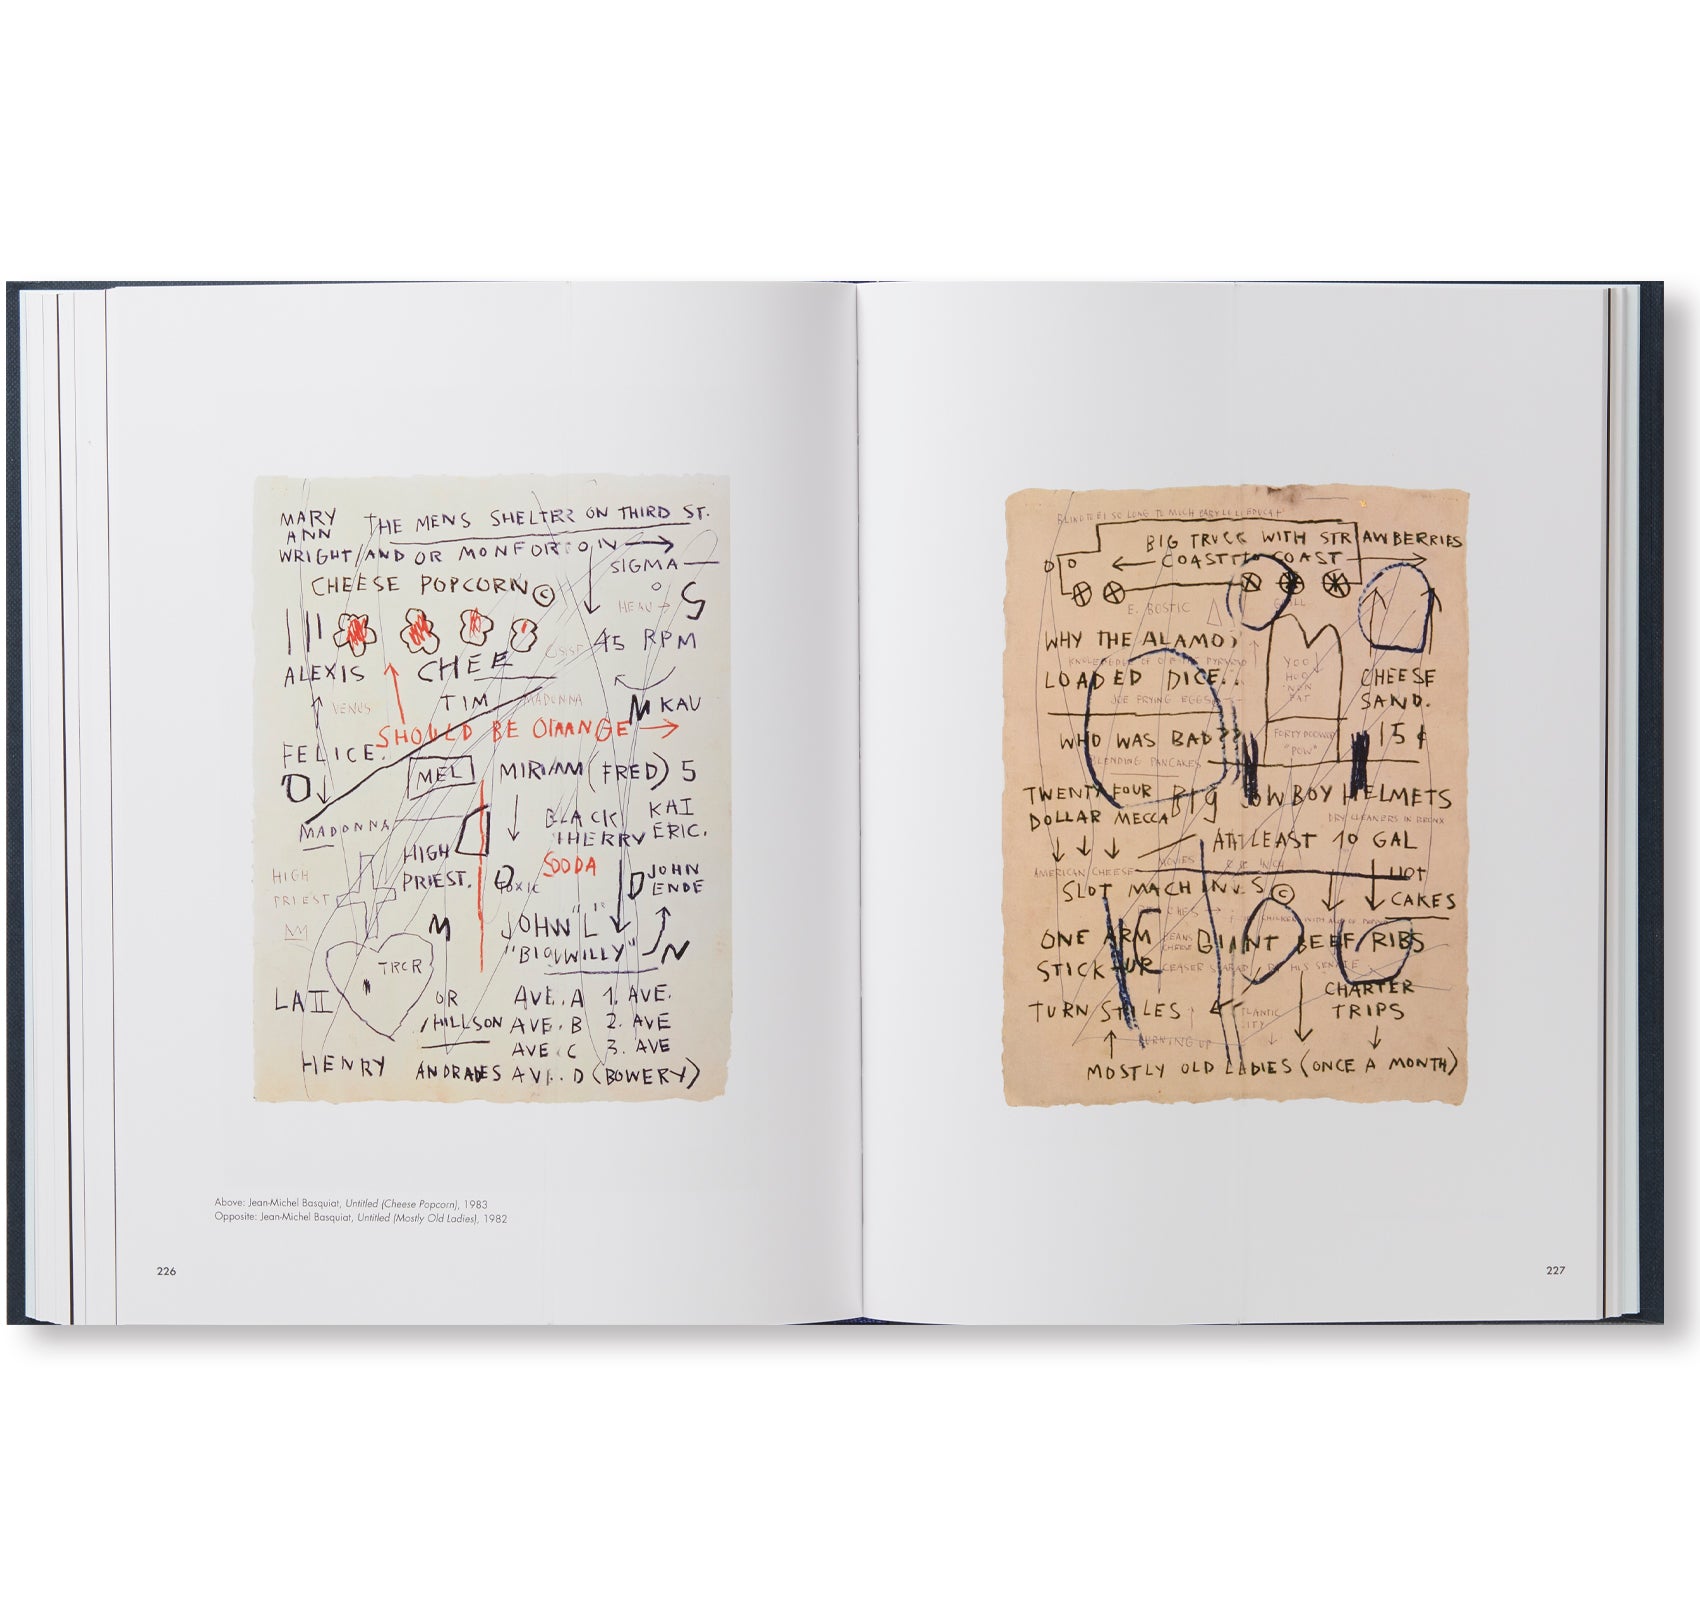 MARY
ANN
THE MENS SHELTER ON THIRD ST.
WRIGHT/AND OR MONFORTO IV
SIGMA
CHEESE POPCORN ©
HEAD
45 RPM
ALEXIS
CHEE
VENUS
TIM
MADONNA
M KAU
SHOULD BE ORANGE
FELICE.
MEL
MIRIAM (FRED) 5
BLACK
CHERRY
KAI
ERIC.
MADONNA
HIGH
PRIEST.
SODA
TOXIC
JOHN
ENDE
HIGH
PRIEST
M
JOHN "L"
"BIG WILLY"
N
TRCR
LA II
OR
HILLSON
AVE. A 1. AVE.
AVE. B 2. AVE
AVE. C 3. AVE
HENRY
ANDRADES AVE. D (BOWERY)
Above: Jean-Michel Basquiat, Untitled (Cheese Popcorn), 1983
Opposite: Jean-Michel Basquiat, Untitled (Mostly Old Ladies), 1982
226
BIG TRUCK WITH STRAWBERRIES
COAST TO COAST
E. BOSTIC
WHY THE ALAMO?
LOADED DICE..
JOE FRYING EGGS
YOO
HOO
CHEESE
SAND.
WHO WAS BAD??
"POW"
15¢
BLENDING PANCAKES
TWENTY FOUR
DOLLAR MECCA
BIG COWBOY HELMETS
DRY CLEANERS IN BRONX
AT LEAST 10 GAL
MOVIES
AMERICAN CHEESE
HOT
CAKES
SLOT MACHINES ©
ONE ARM
STICK-UP
GIANT BEEF RIBS
CHARTER
TRIPS
TURN STILES
BURNING UP
MOSTLY OLD LADIES (ONCE A MONTH)
227